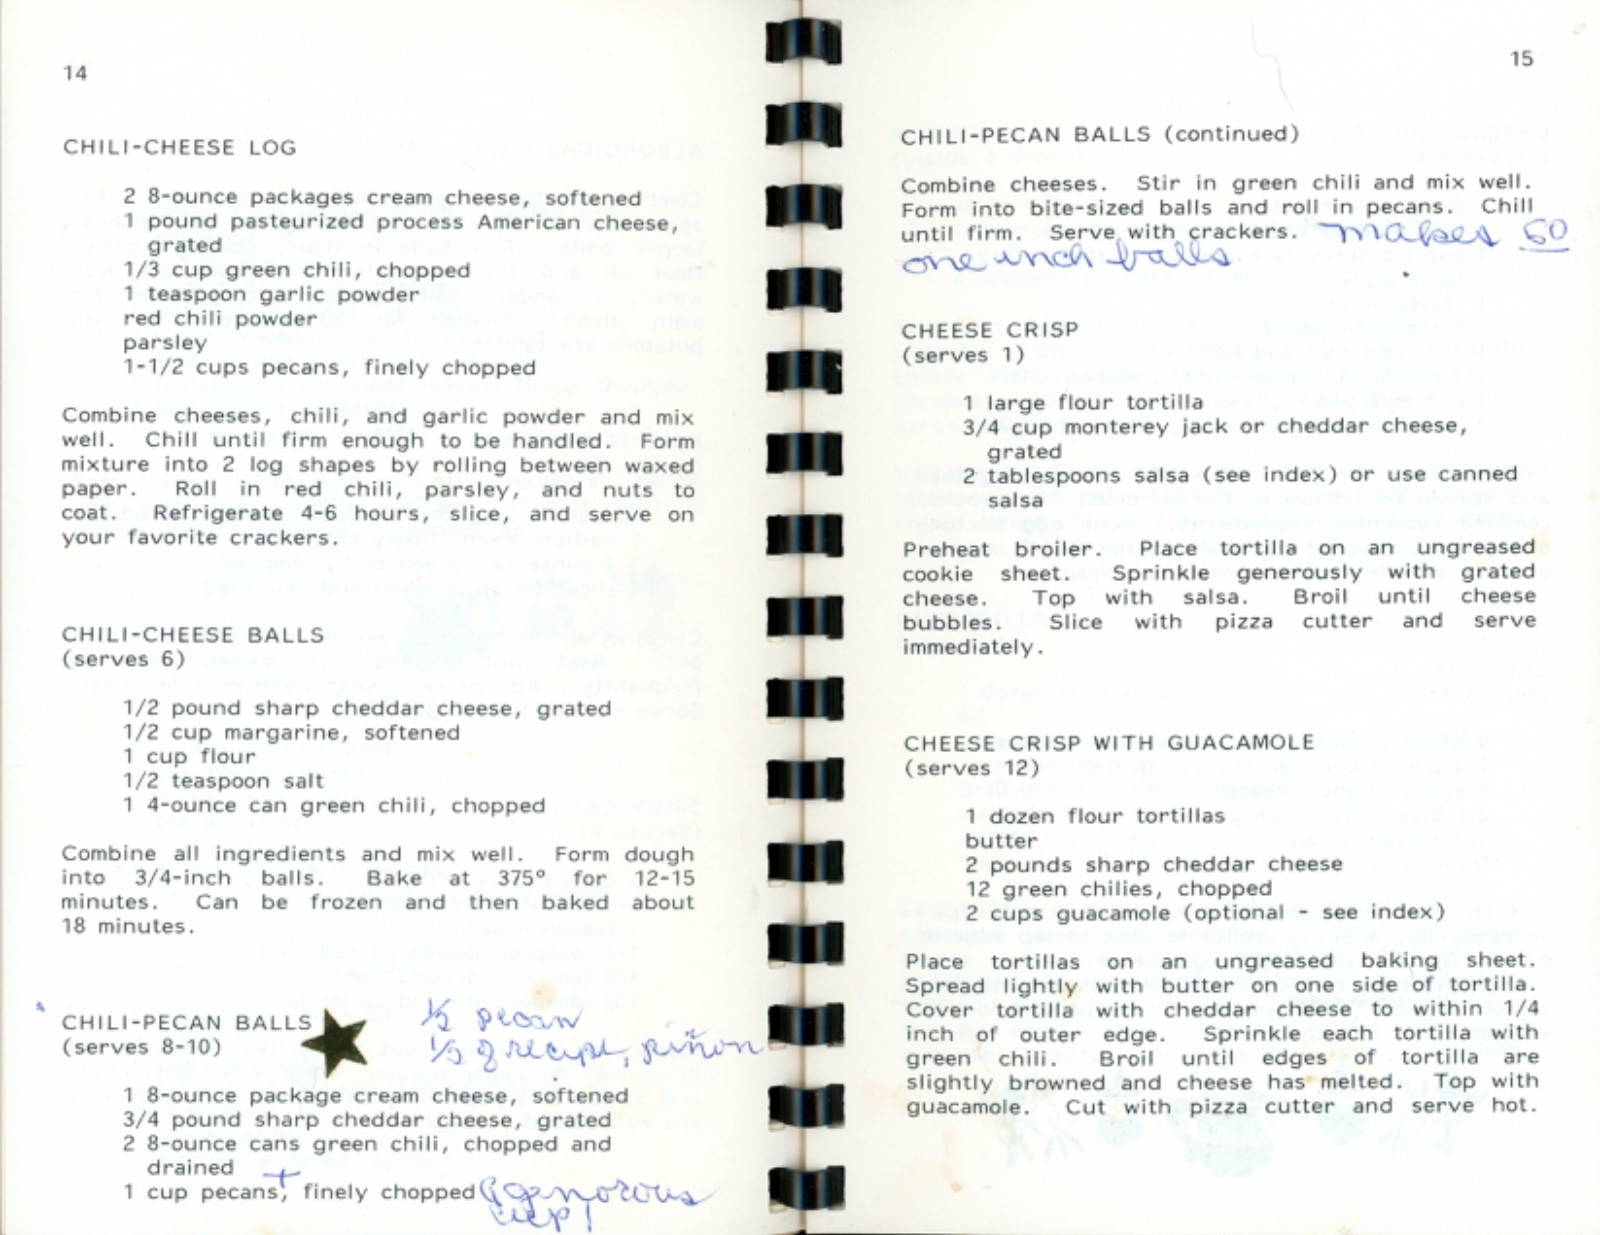 14
CHILI-CHEESE LOG
2 8-ounce packages cream cheese, softened
1 pound pasteurized process American cheese,
grated
1/3 cup green chili, chopped
1 teaspoon garlic powder
red chili powder
parsley
1-1/2 cups pecans, finely chopped
Combine cheeses, chili, and garlic powder and mix
well. Chill until firm enough to be handled. Form
mixture into 2 log shapes by rolling between waxed
paper. Roll in red chili, parsley, and nuts to
coat. Refrigerate 4-6 hours, slice, and serve on
your favorite crackers.
CHILI-CHEESE BALLS
(serves 6)
1/2 pound sharp cheddar cheese, grated
1/2 cup margarine, softened
1 cup flour
1/2 teaspoon salt
1 4-ounce can green chili, chopped
Combine all ingredients and mix well. Form dough
into 3/4-inch balls. Bake at 375° for 12-15
minutes. Can be frozen and then baked about
18 minutes.
CHILI-PECAN BALLS
(serves 8-10)
½ pecan
½ of recipe piñon
1 8-ounce package cream cheese, softened
3/4 pound sharp cheddar cheese, grated
2 8-ounce cans green chili, chopped and
drained
1 cup pecans, + finely chopped generous
cup!
15
CHILI-PECAN BALLS (continued)
Combine cheeses. Stir in green chili and mix well.
Form into bite-sized balls and roll in pecans. Chill
until firm. Serve with crackers. makes 50
one inch balls
CHEESE CRISP
(serves 1)
1 large flour tortilla
3/4 cup monterey jack or cheddar cheese,
grated
2 tablespoons salsa (see index) or use canned
salsa
Preheat broiler. Place tortilla on an ungreased
cookie sheet. Sprinkle generously with grated
cheese. Top with salsa. Broil until cheese
bubbles. Slice with pizza cutter and serve
immediately.
CHEESE CRISP WITH GUACAMOLE
(serves 12)
1 dozen flour tortillas
butter
2 pounds sharp cheddar cheese
12 green chilies, chopped
2 cups guacamole (optional - see index)
Place tortillas on an ungreased baking sheet.
Spread lightly with butter on one side of tortilla.
Cover tortilla with cheddar cheese to within 1/4
inch of outer edge. Sprinkle each tortilla with
green chili. Broil until edges of tortilla are
slightly browned and cheese has melted. Top with
guacamole. Cut with pizza cutter and serve hot.